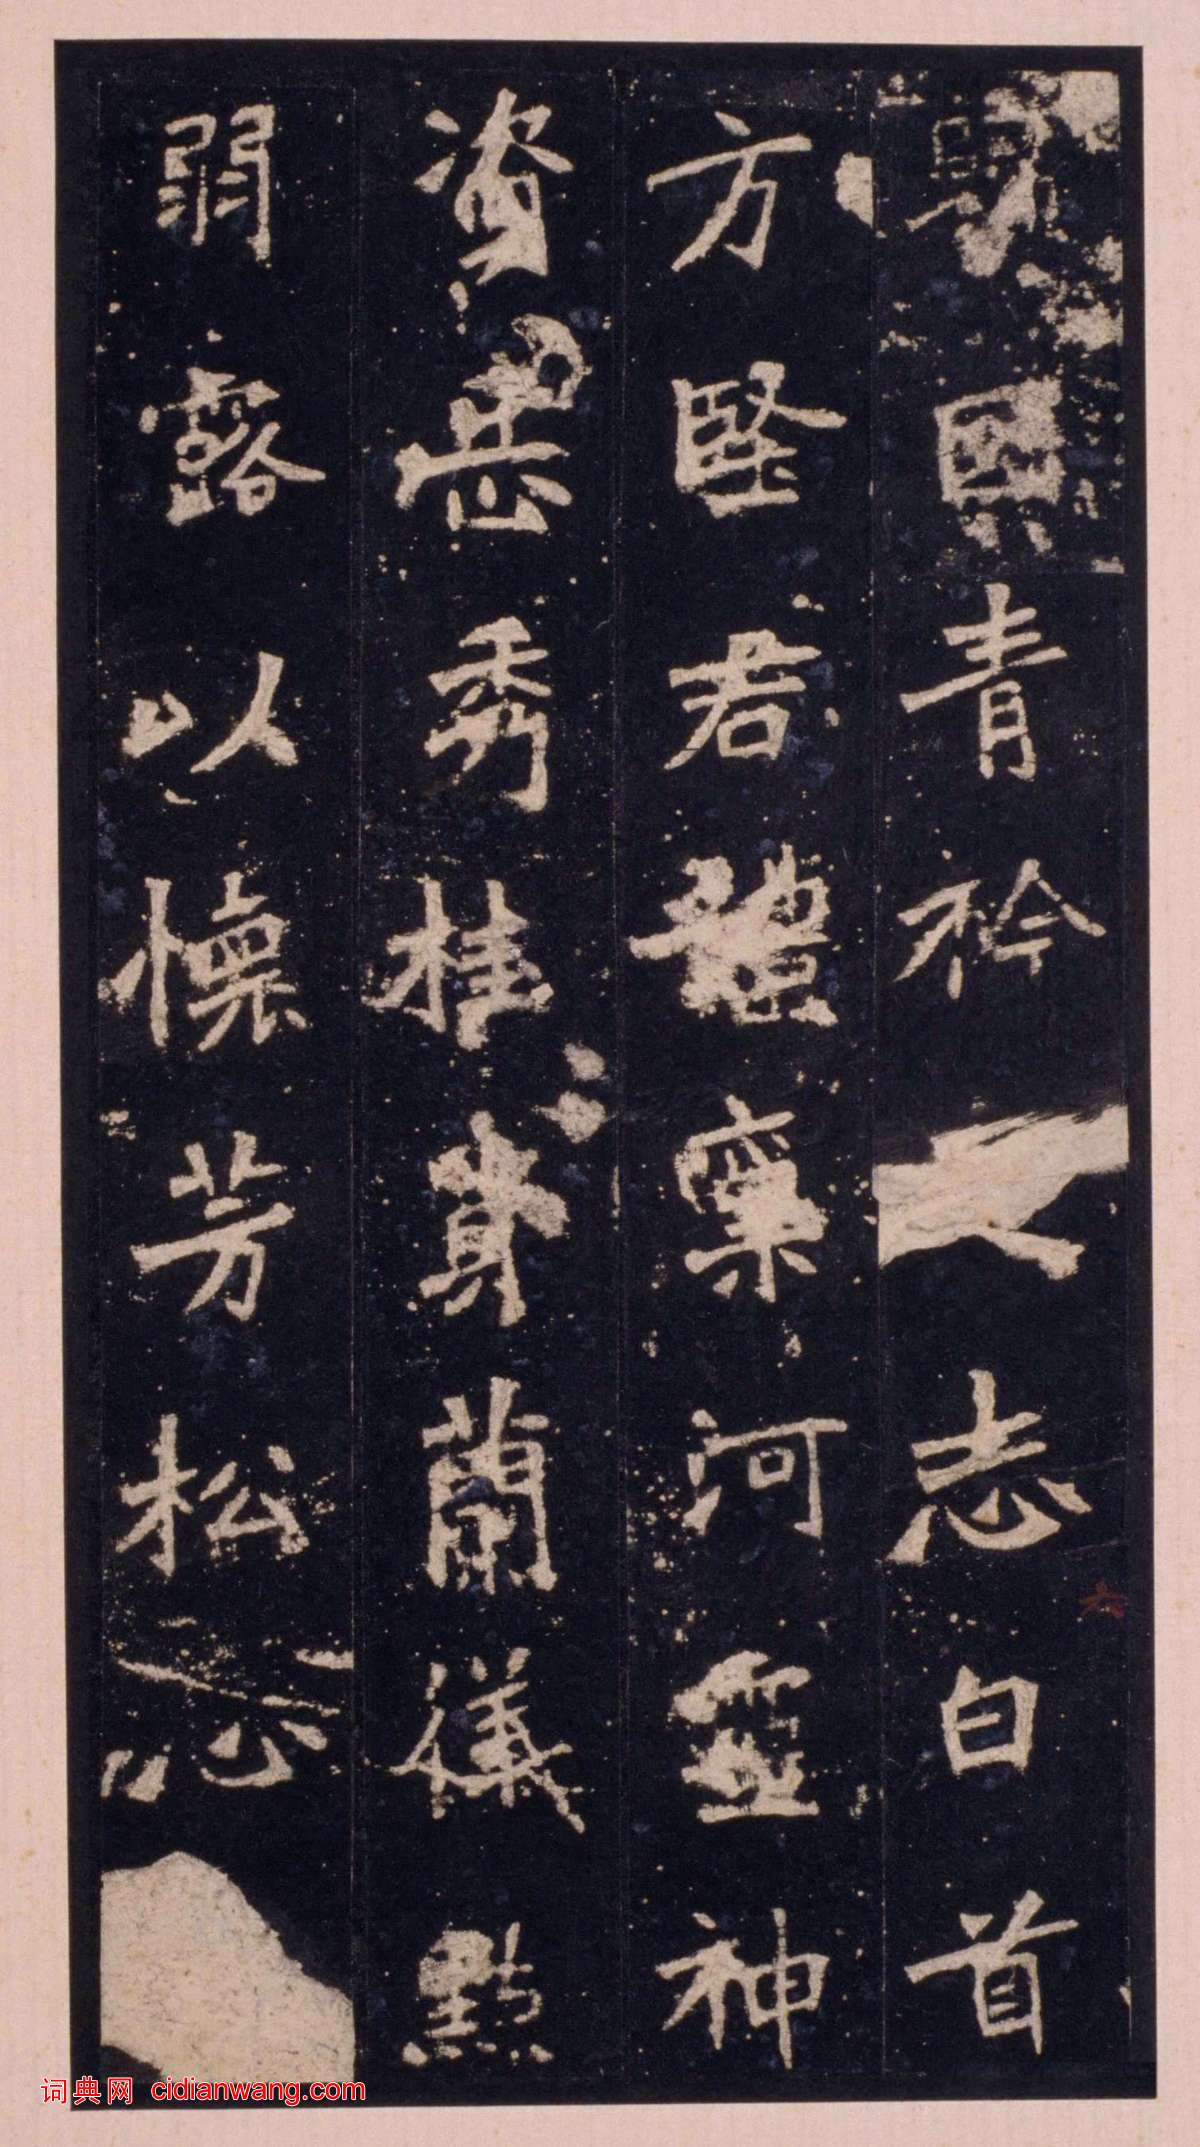 青衿之志白首
方堅君體稟河靈神
資岳秀桂質蘭儀點
弱露以懷芳松心
词典网 cidianwang.com